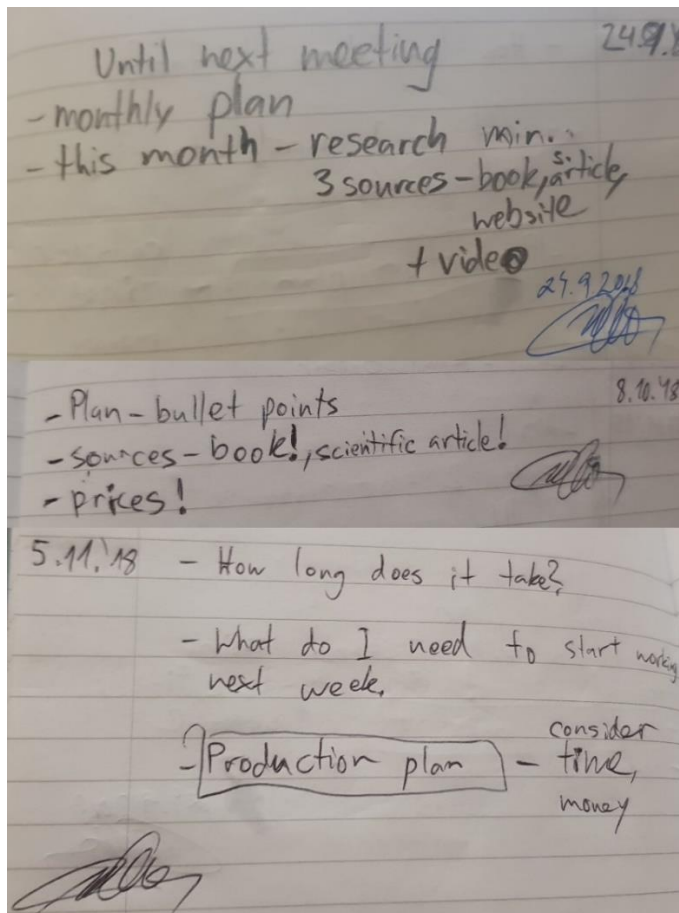 Until next meeting
24.9.
- monthly plan
- this month - research min.
3 sources - book, s. article,
website
+ video
24.9.2018
8.10.'18
- Plan - bullet points
- sources - book!, scientific article!
- prices!
5.11.'18 - How long does it take?
- What do I need to start working
next week.
- Production plan - consider
time,
money